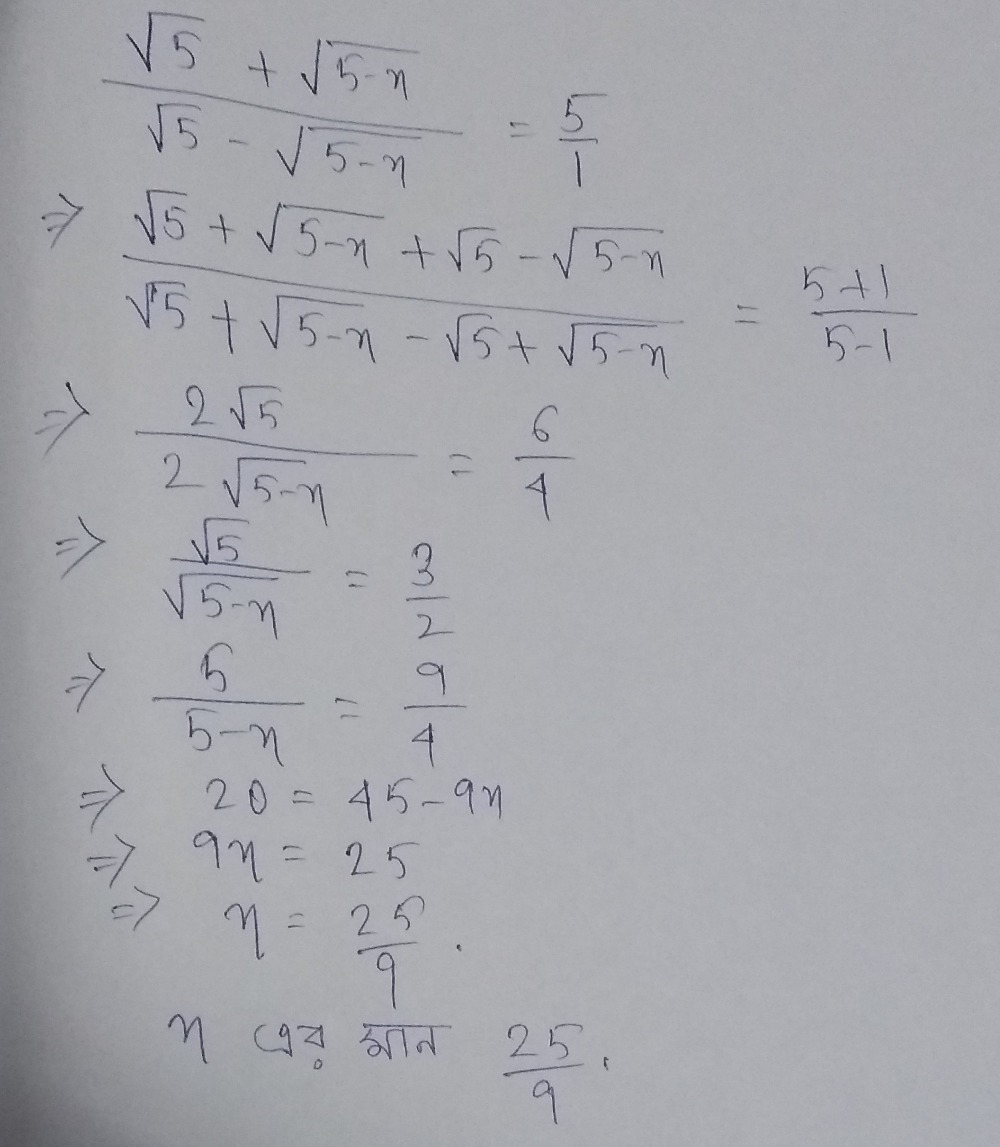 (√5 + √(5-x))/(√5 - √(5-x)) = 5/1
⇒ (√5 + √(5-x) + √5 - √(5-x))/(√5 + √(5-x) - √5 + √(5-x)) = (5+1)/(5-1)
⇒ 2√5/(2√(5-x)) = 6/4
⇒ √5/√(5-x) = 3/2
⇒ 5/(5-x) = 9/4
⇒ 20 = 45-9x
⇒ 9x = 25
⇒ x = 25/9.
x এর মান 25/9.